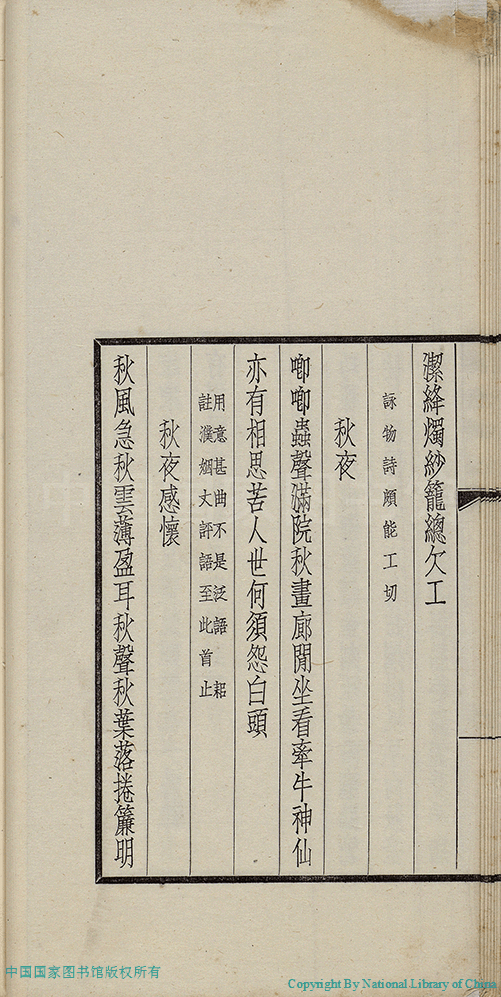 潔絳燭紗籠總欠工
詠物詩頗能工切
秋夜
唧唧蟲聲滿院秋畫廊閒坐看牽牛神仙
亦有相思苦人世何須怨白頭
用意甚曲不是泛語 紹
註濮姻丈評語至此首止
秋夜感懷
秋風急秋雲薄盈耳秋聲秋葉落捲簾明
中国国家图书馆版权所有
Copyright By National Library of China